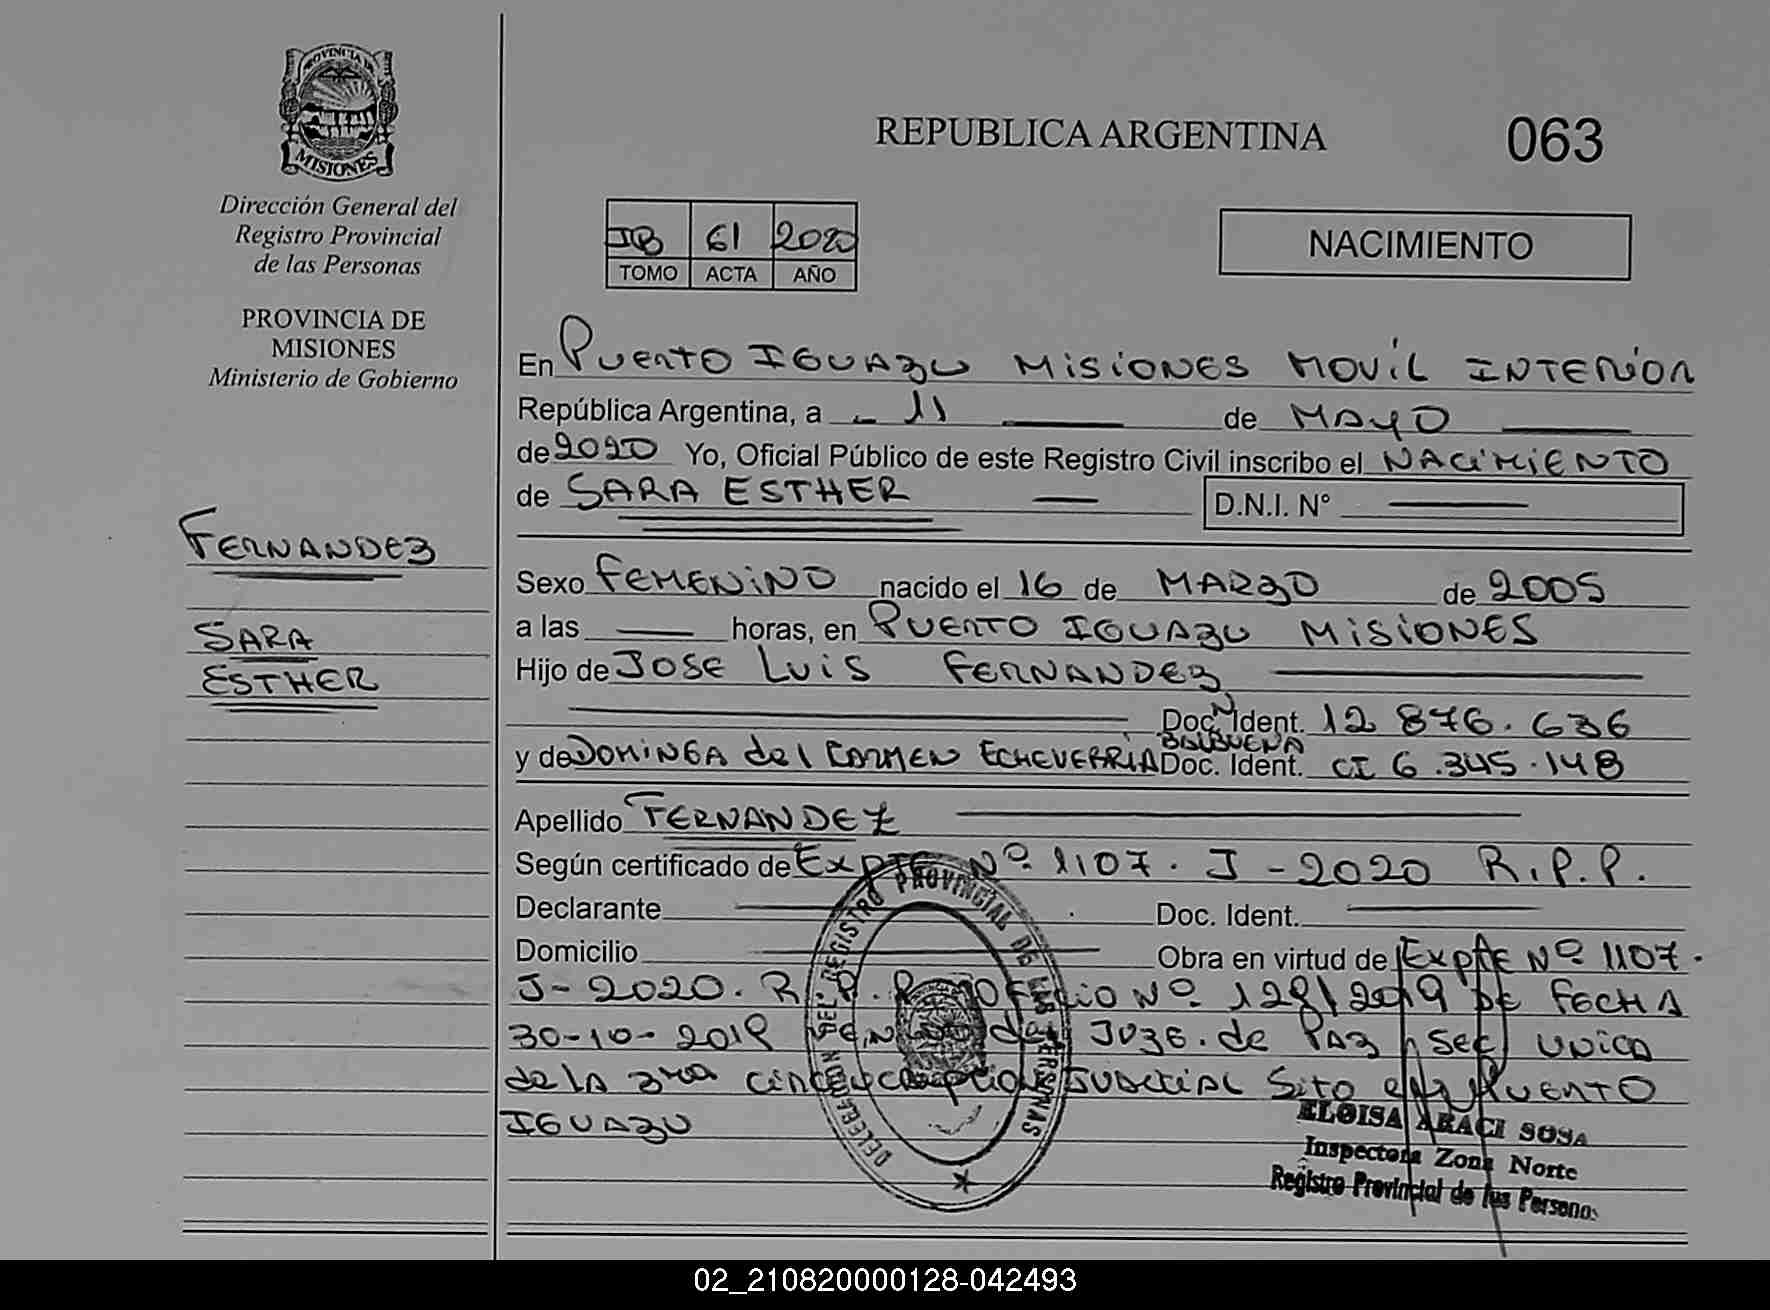 PROVINCIA DE
MISIONES
Dirección General del
Registro Provincial
de las Personas
PROVINCIA DE
MISIONES
Ministerio de Gobierno
FERNANDEZ
SARA
ESTHER
REPUBLICA ARGENTINA
063
61 2020
TOMO ACTA AÑO
NACIMIENTO
En PUERTO IGUAZU MISIONES MOVIL INTERIOR
República Argentina, a 11 de MAYO
de 2020 Yo, Oficial Público de este Registro Civil inscribo el NACIMIENTO
de SARA ESTHER D.N.I. N°
Sexo FEMENINO nacido el 16 de MARZO de 2005
a las horas, en PUERTO IGUAZU MISIONES
Hijo de JOSE LUIS FERNANDEZ
Doc. Ident. 12 876.636
y de DOMINGA del CARMEN ECHEVERRIA Doc. Ident. CI 6.345.148
Apellido FERNANDEZ
Según certificado de Expte Nº 1107. J-2020 R.P.P.
Declarante Doc. Ident.
Domicilio Obra en virtud de Expte Nº 1107.
J-2020. R.P.P. OFICIO Nº 128/2019 DE FECHA
30-10-2019 del JUZG. de PAZ SEC UNICA
de la 3ra circunscripcion JUDICIAL Sito en PUERTO
IGUAZU
DELEGACION DEL REGISTRO PROVINCIAL DE LAS PERSONAS
ELOISA ARACI SOSA
Inspectora Zona Norte
Registro Provincial de las Personas
02_210820000128-042493